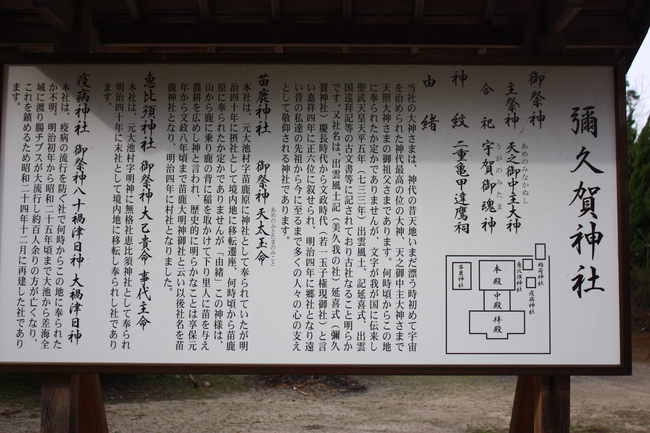 彌久賀神社
御祭神
主祭神 天之御中主大神
あめのみなかぬし
合祀 宇賀御魂神
うがのみたま
神紋 二重亀甲違鷹羽
由緒
当社の大神さまは、神代の昔天地いまだ漂う時初めて宇宙
を治められた神代最高の位の大神、天之御中主大神さまで
天照大神さまの御祖父さまであります。何時頃からこの地
に奉られたか定かでありませんが、文字が我が国に伝来し
聖武天皇天平五年（七三三年）出雲風土記、延喜式、出雲
国巡拝記等の古文書等に記されており古社なること明らか
です。又社名は、出雲風土記（美久我の社）延喜式（彌久
賀神社）慶長時代から文政時代（若一玉子権現御社）と言
い嘉祥四年に正六位に叙せられ、明治四年に郷社となり遠
い昔の私達の先祖から今に至るまで多くの人々の心の支え
として敬仰される神社であります。
苗鹿神社 御祭神 天太玉命
あめのふとたまのみこと
本社は、元大池村字苗鹿原に神社として奉られていたが明
治四十年に摂社として境内地に移転遷座、何時頃から苗鹿
原に奉られたか定かでありませんが「由緒」この神様は、
山から鹿に乗り鹿の背に稲を取かけて下り里人に苗を与え
農耕を広めし神と言われ、歴史的に明らかなことは享保元
年から文政八年頃まで苗鹿大明神御社と云い以後社名を苗
鹿神社となり、明治四年に村社となりました。
恵比須神社 御祭神 大己貴命 事代主命
本社は、元大池村字明神に無格社恵比須神社として奉られ
明治四十年に末社として境内地に移転し奉られし社であり
ます。
疫病神社 御祭神八十禍津日神 大禍津日神
本社は、疫病の流行を防ぐ社で何時からこの地に奉られた
か不明、明治初年から昭和二十五年頃まで大池から差海全
城に渡り腸チブスが大流行し約百人余りの方が亡くなり、
これを鎮めるため昭和二十四年十二月に再建した社であり
ます。
稲荷神社
恵比須神社
疫病神社
苗鹿神社
本殿
中殿
拝殿